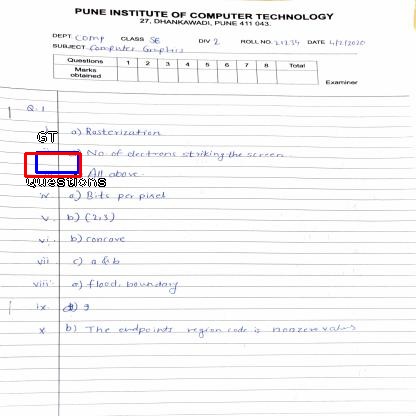 PUNE INSTITUTE OF COMPUTER TECHNOLOGY
27, DHANKAWADI, PUNE 411 043.
DEPT Comp CLASS SE DIV 2 ROLL NO. 21234 DATE 4/2/2020
SUBJECT Computer Graphics
Questions 1 2 3 4 5 6 7 8 Total
Marks obtained
Examiner
Q.1
GT
a) Rasterization
No. of electrons striking the screen.
All above.
Questions
iv a) Bits per pixel
v. b) (2,3)
vi b) concave
vii c) a & b
viii a) flood, boundary
ix. 9
x b) The endpoints region code is nonzero values